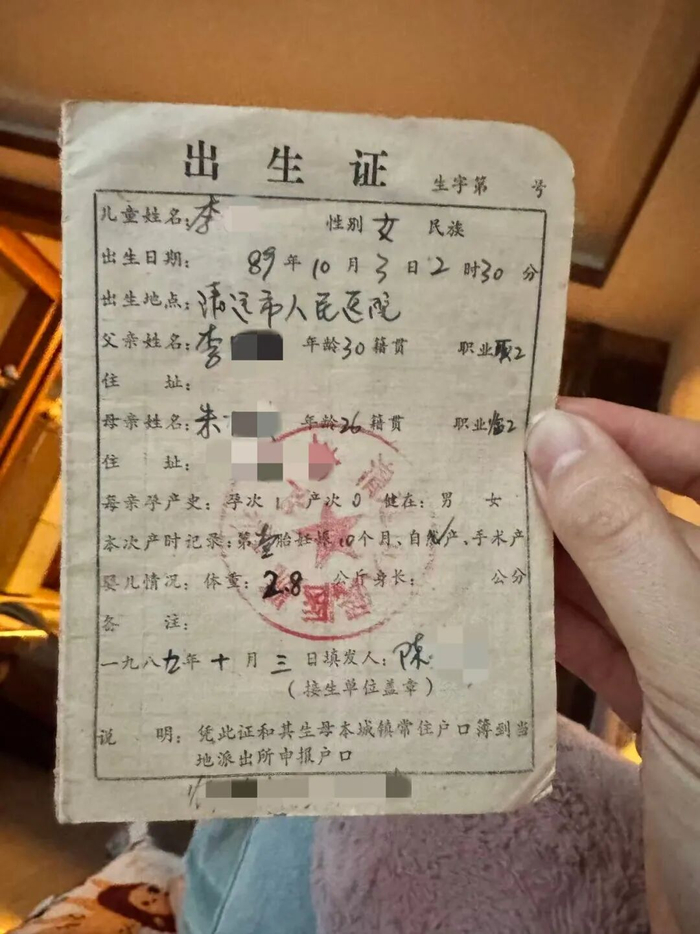 出生证
生字第 号
儿童姓名：李 性别 女 民族
出生日期： 89 年 10 月 3 日 2 时 30 分
出生地点：清远市人民医院
父亲姓名：李 年龄 30 籍贯 职业
住 址：
母亲姓名：朱 年龄 26 籍贯 职业
住 址：
母亲孕产史：孕次 1 产次 0 健在：男 女
本次产时记录：第壹胎妊娠 10 个月、自然产、手术产
婴儿情况：体重：2.8 公斤身长： 公分
备 注：
一九八九年 十 月 三 日填发人：陈
（接生单位盖章）
说 明：凭此证和其生母本城镇常住户口簿到当
地派出所申报户口